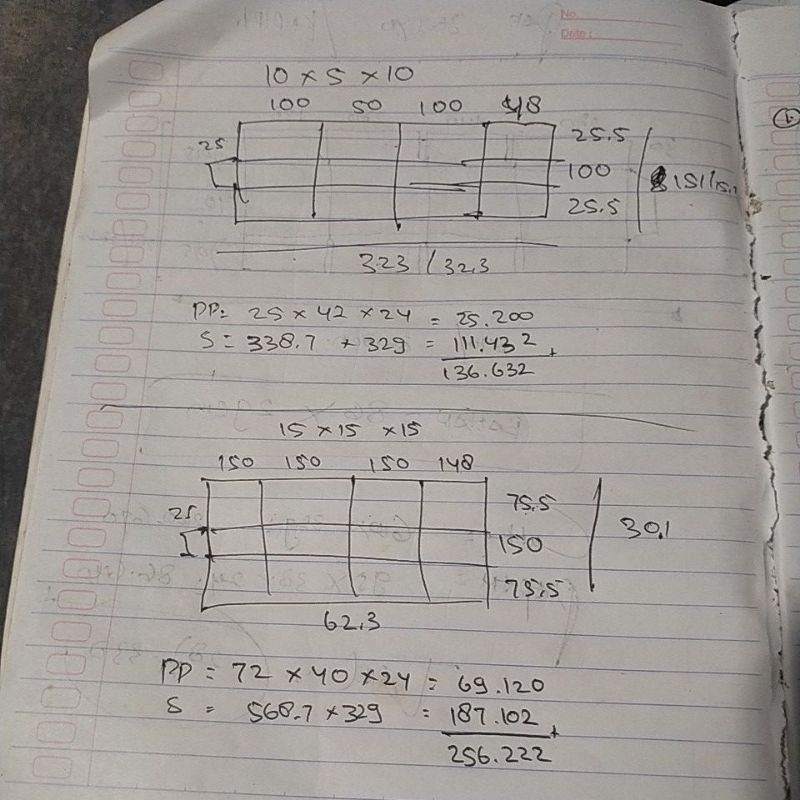 No.
Date:
10 x 5 x 10
100 50 100 48
25
25.5
100
25.5
151/15.1
323 / 32.3
PP = 25 x 42 x 24 = 25.200
S = 338.7 x 329 = 111.432 +
136.632
15 x 15 x 15
150 150 150 148
25
75.5
150
75.5
30.1
62.3
PP = 72 x 40 x 24 = 69.120
S = 568.7 x 329 = 187.102 +
256.222